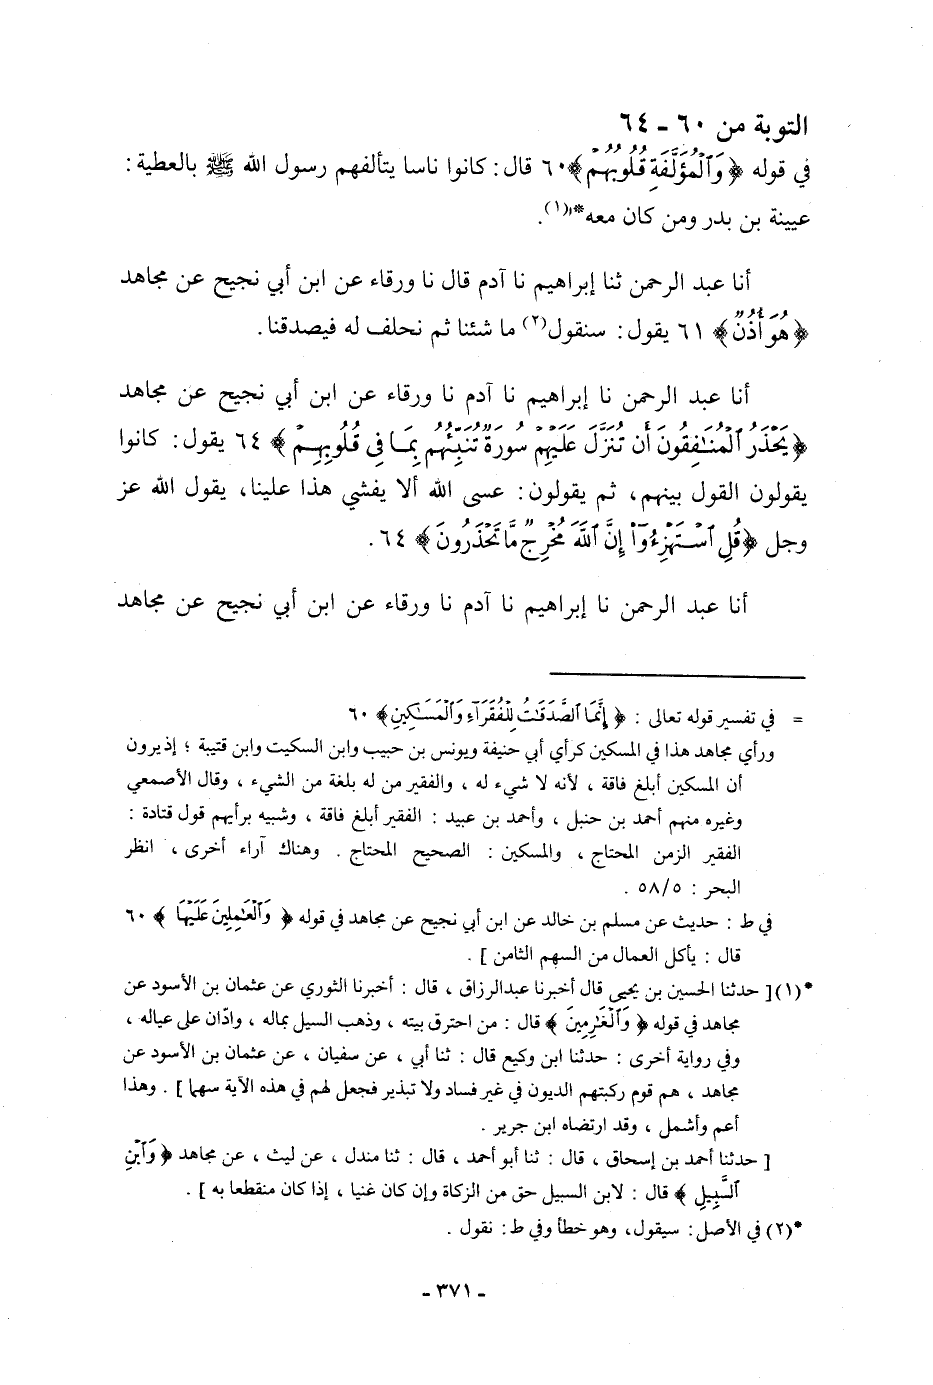 التوبة من ٦٠ - ٦٤
في قوله ﴿وَٱلْمُؤَلَّفَةِ قُلُوبُهُمْ﴾ ٦٠ قال: كانوا ناسا يتألفهم رسول الله ﷺ بالعطية:
عيينة بن بدر ومن كان معه*(١).
أنا عبد الرحمن ثنا إبراهيم نا آدم قال نا ورقاء عن ابن أبي نجيح عن مجاهد
﴿هُوَ أُذُنٌ﴾ ٦١ يقول: سنقول(٢) ما شئنا ثم نحلف له فيصدقنا.
أنا عبد الرحمن نا إبراهيم نا آدم نا ورقاء عن ابن أبي نجيح عن مجاهد
﴿يَحْذَرُ ٱلْمُنَـٰفِقُونَ أَن تُنَزَّلَ عَلَيْهِمْ سُورَةٌ تُنَبِّئُهُم بِمَا فِى قُلُوبِهِمْ﴾ ٦٤ يقول: كانوا
يقولون القول بينهم، ثم يقولون: عسى الله ألا يفشي هذا علينا، يقول الله عز
وجل ﴿قُلِ ٱسْتَهْزِءُوٓا۟ إِنَّ ٱللَّهَ مُخْرِجٌ مَّا تَحْذَرُونَ﴾ ٦٤.
أنا عبد الرحمن نا إبراهيم نا آدم نا ورقاء عن ابن أبي نجيح عن مجاهد
= في تفسير قوله تعالى : ﴿إِنَّمَا ٱلصَّدَقَـٰتُ لِلْفُقَرَآءِ وَٱلْمَسَـٰكِينِ﴾ ٦٠
ورأي مجاهد هذا في المسكين كرأي أبي حنيفة ويونس بن حبيب وابن السكيت وابن قتيبة ؛ إذ يرون
أن المسكين أبلغ فاقة ، لأنه لا شيء له ، والفقير من له بلغة من الشيء ، وقال الأصمعي
وغيره منهم أحمد بن حنبل ، وأحمد بن عبيد : الفقير أبلغ فاقة ، وشبيه برأيهم قول قتادة :
الفقير الزمن المحتاج ، والمسكين : الصحيح المحتاج . وهناك آراء أخرى ، انظر
البحر : ٥٨/٥ .
في ط : حديث عن مسلم بن خالد عن ابن أبي نجيح عن مجاهد في قوله ﴿وَٱلْعَـٰمِلِينَ عَلَيْهَا﴾ ٦٠
قال : يأكل العمال من السهم الثامن ] .
*(١)[ حدثنا الحسين بن يحيى قال أخبرنا عبدالرزاق ، قال : أخبرنا الثوري عن عثمان بن الأسود عن
مجاهد في قوله ﴿وَٱلْغَـٰرِمِينَ﴾ قال : من احترق بيته ، وذهب السيل بماله ، وادّان على عياله ،
وفي رواية أخرى : حدثنا ابن وكيع قال : ثنا أبي ، عن سفيان ، عن عثمان بن الأسود عن
مجاهد ، هم قوم ركبتهم الديون في غير فساد ولا تبذير فجعل لهم في هذه الآية سهما ] . وهذا
أعم وأشمل ، وقد ارتضاه ابن جرير .
[ حدثنا أحمد بن إسحاق ، قال : ثنا أبو أحمد ، قال : ثنا مندل ، عن ليث ، عن مجاهد ﴿وَٱبْنِ
ٱلسَّبِيلِ﴾ قال : لابن السبيل حق من الزكاة وإن كان غنيا ، إذا كان منقطعا به ] .
*(٢) في الأصل: سيقول، وهو خطأ وفي ط: نقول .
- ٣٧١ -